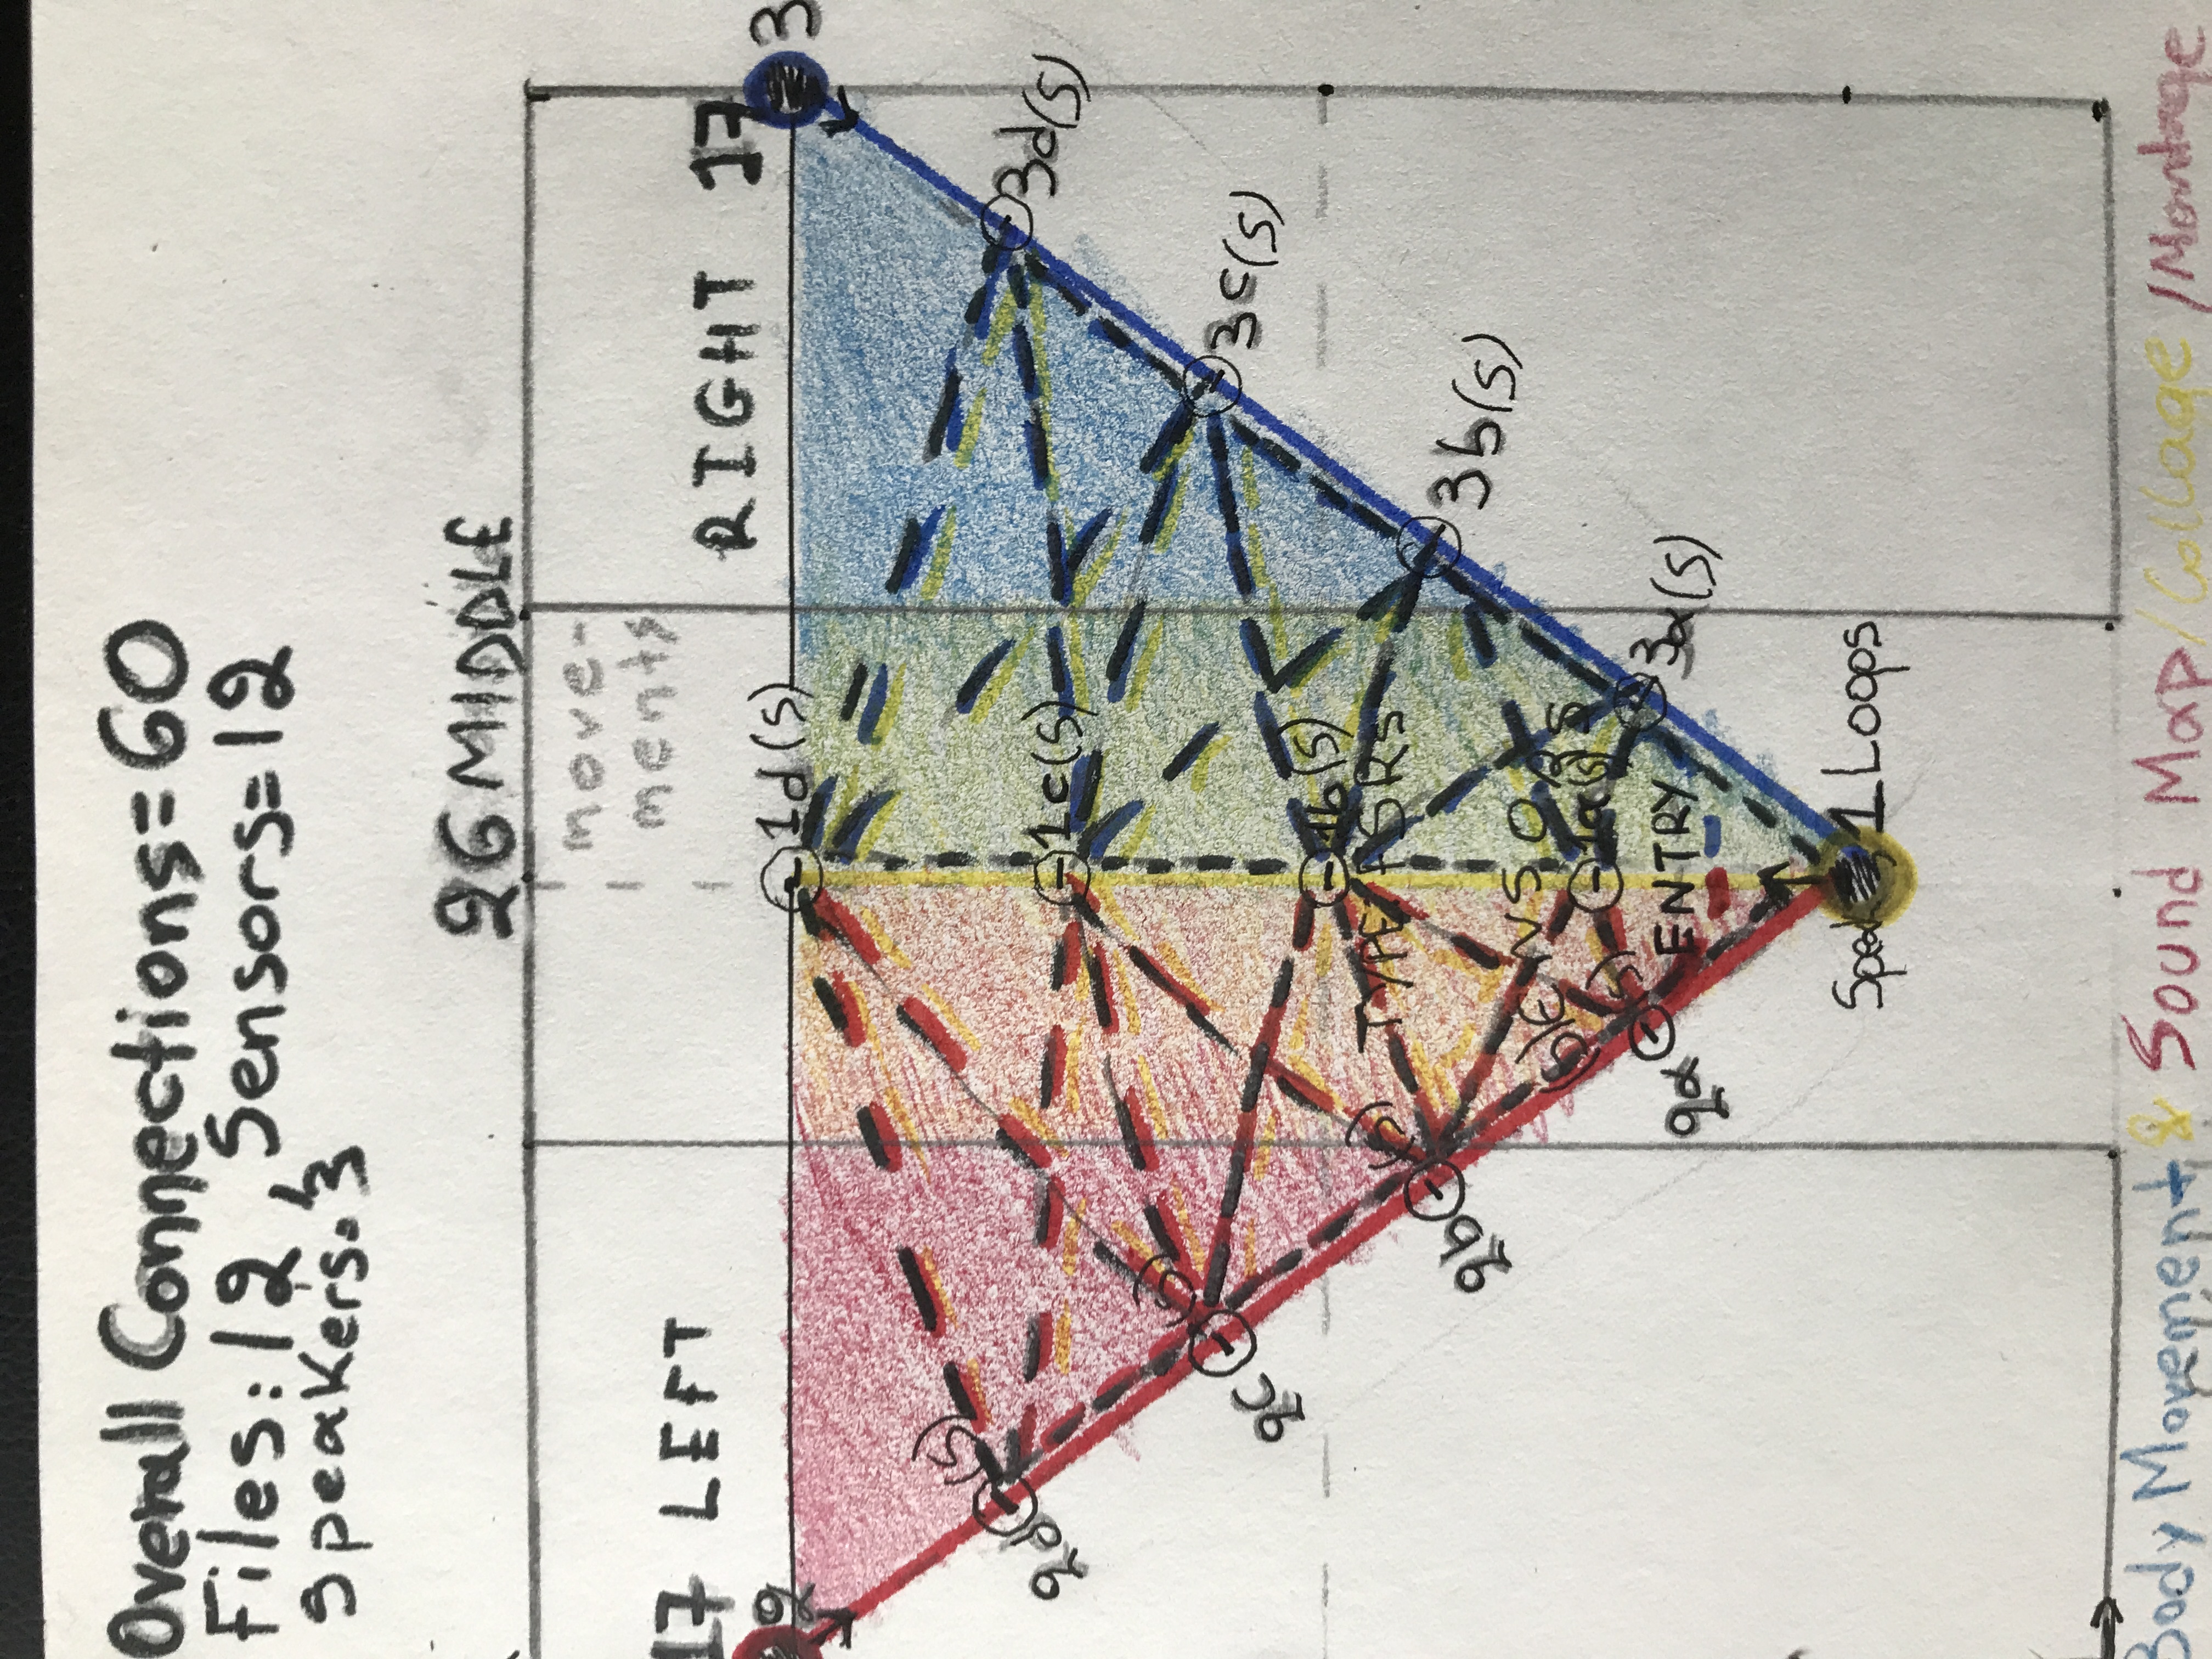 Overall Connections=60
Files:12, Sensors=12
Speakers=3
26 MIDDLE
move-
ments
17 LEFT
RIGHT 17
2
1d(s)
3
(s)
2d
1c(s)
3d(s)
(s)
2c
3c(s)
1b(s)
TYPE: FSRs
(s)
2b
3b(s)
SENSORS
(s)
1a(s)
(s)
2a
3a(s)
ENTRY
Speak 1 Loops
Body Movement & Sound Map/Collage/Montage